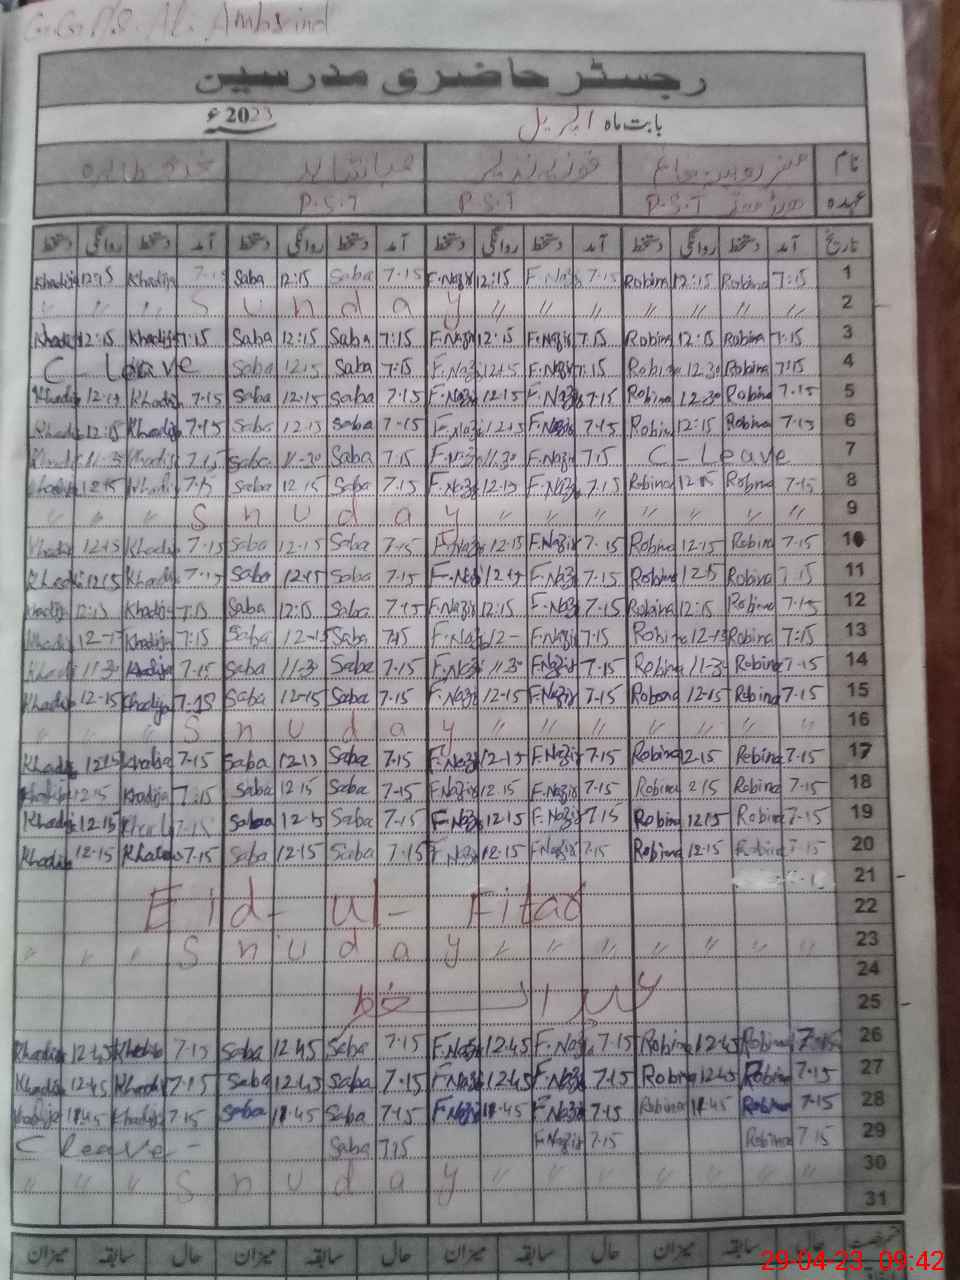 G.G.P.S. AL. Ambrind
رجسٹر حاضری مدرسین
بابت ماہ اپریل 2023ء
نام مسز روبینہ فوزیہ نذیر صبا شاہد خدیجہ طاہرہ
عہدہ ہیڈ مسٹریس P.S.T P.S.T P.S.T
تاریخ آمد دستخط روانگی دستخط آمد دستخط روانگی دستخط آمد دستخط روانگی دستخط آمد دستخط روانگی دستخط
1 7:15 Robina 12:15 Robina 7:15 F.Nazir 12:15 F.Nazir 7:15 Saba 12:15 Saba 7:15 Khadija 12:15 Khadija
2 " " " S u n d a y " " " " " " "
3 7:15 Robina 12:15 Robina 7:15 F.Nazir 12:15 F.Nazir 7:15 Saba 12:15 Saba 7:15 Khadija 12:15 Khadija
4 7:15 Robina 12:30 Robina 7:15 F.Nazir 12:15 F.Nazir 7:15 Saba 12:15 Saba C - Leave
5 7.15 Robina 12:30 Robina 7.15 F.Nazir 12.15 F.Nazir 7.15 Saba 12.15 Saba 7.15 Khadija 12.15 Khadija
6 7.15 Robina 12:15 Robina 7.15 F.Nazir 12.15 F.Nazir 7.15 Saba 12.15 Saba 7.15 Khadija 12:15 Khadija
7 C - Leave 7.15 F.Nazir 11.30 F.Nazir 7.15 Saba 11-30 Saba 7.15 Khadija 11-30 Khadija
8 7.15 Robina 12.15 Robina 7.15 F.Nazir 12.15 F.Nazir 7.15 Saba 12.15 Saba 7.15 Khadija 12.15 Khadija
9 " " " S n u d a y " " " " " " "
10 7.15 Robina 12.15 Robina 7.15 F.Nazir 12.15 F.Nazir 7.15 Saba 12.15 Saba 7.15 Khadija 12.15 Khadija
11 7.15 Robina 12.15 Robina 7.15 F.Nazir 12.15 F.Nazir 7.15 Saba 12.15 Saba 7.15 Khadija 12.15 Khadija
12 7.15 Robina 12:15 Robina 7.15 F.Nazir 12:15 F.Nazir 7.15 Saba 12:15 Saba 7:15 Khadija 12:15 Khadija
13 7:15 Robina 12-15 Robina 7.15 F.Nazir 12- F.Nazir 7.15 Saba 12-15 Saba 7:15 Khadija 12-15 Khadija
14 7.15 Robina 11-30 Robina 7.15 F.Nazir 11.30 F.Nazir 7.15 Saba 11-30 Saba 7.15 Khadija 11-30 Khadija
15 7.15 Robina 12-15 Robona 7.15 F.Nazir 12-15 F.Nazir 7.15 Saba 12-15 Saba 7-15 Khadija 12-15 Khadija
16 " " " S n u d a y " " " " " " "
17 7.15 Robina 12.15 Robina 7.15 F.Nazir 12-15 F.Nazir 7.15 Saba 12.15 Saba 7.15 Khadija 12.15 Khadija
18 7.15 Robina 12.15 Robina 7.15 F.Nazir 12.15 F.Nazir 7.15 Saba 12.15 Saba 7:15 Khadija 12.15 Khadija
19 7.15 Robina 12.15 Robina 7.15 F.Nazir 12.15 F.Nazir 7.15 Saba 12.15 Sabaa 7.15 Khadija 12.15 Khadija
20 7.15 Robina 12.15 Robina 7.15 F.Nazir 12.15 F.Nazir 7.15 Saba 12.15 Saba 7.15 12.15 Khadija
21
22 Eid-ul-Fitar
23 " " " S n u d a y " " " "
24
25
26 7.15 Robina 12.45 Robina 7.15 F.Nazir 12.45 F.Nazir 7.15 Saba 12.45 Saba 7.15 Khadija 12.45 Khadija
27 7.15 Robina 12.45 Robina 7.15 F.Nazir 12.45 F.Nazir 7.15 Saba 12.45 Saba 7.15 Khadija 12.45 Khadija
28 7.15 Robina 11.45 Robina 7.15 F.Nazir 11.45 F.Nazir 7.15 Saba 11.45 Saba 7.15 Khadija 11.45 Khadija
29 7.15 Robina 7.15 F.Nazir 7.15 Saba C leave -
30 " " " S n u d a y " " " "
31
رخصت حال سابقہ میزان حال سابقہ میزان حال سابقہ میزان حال سابقہ میزان
29-04-23 09:42